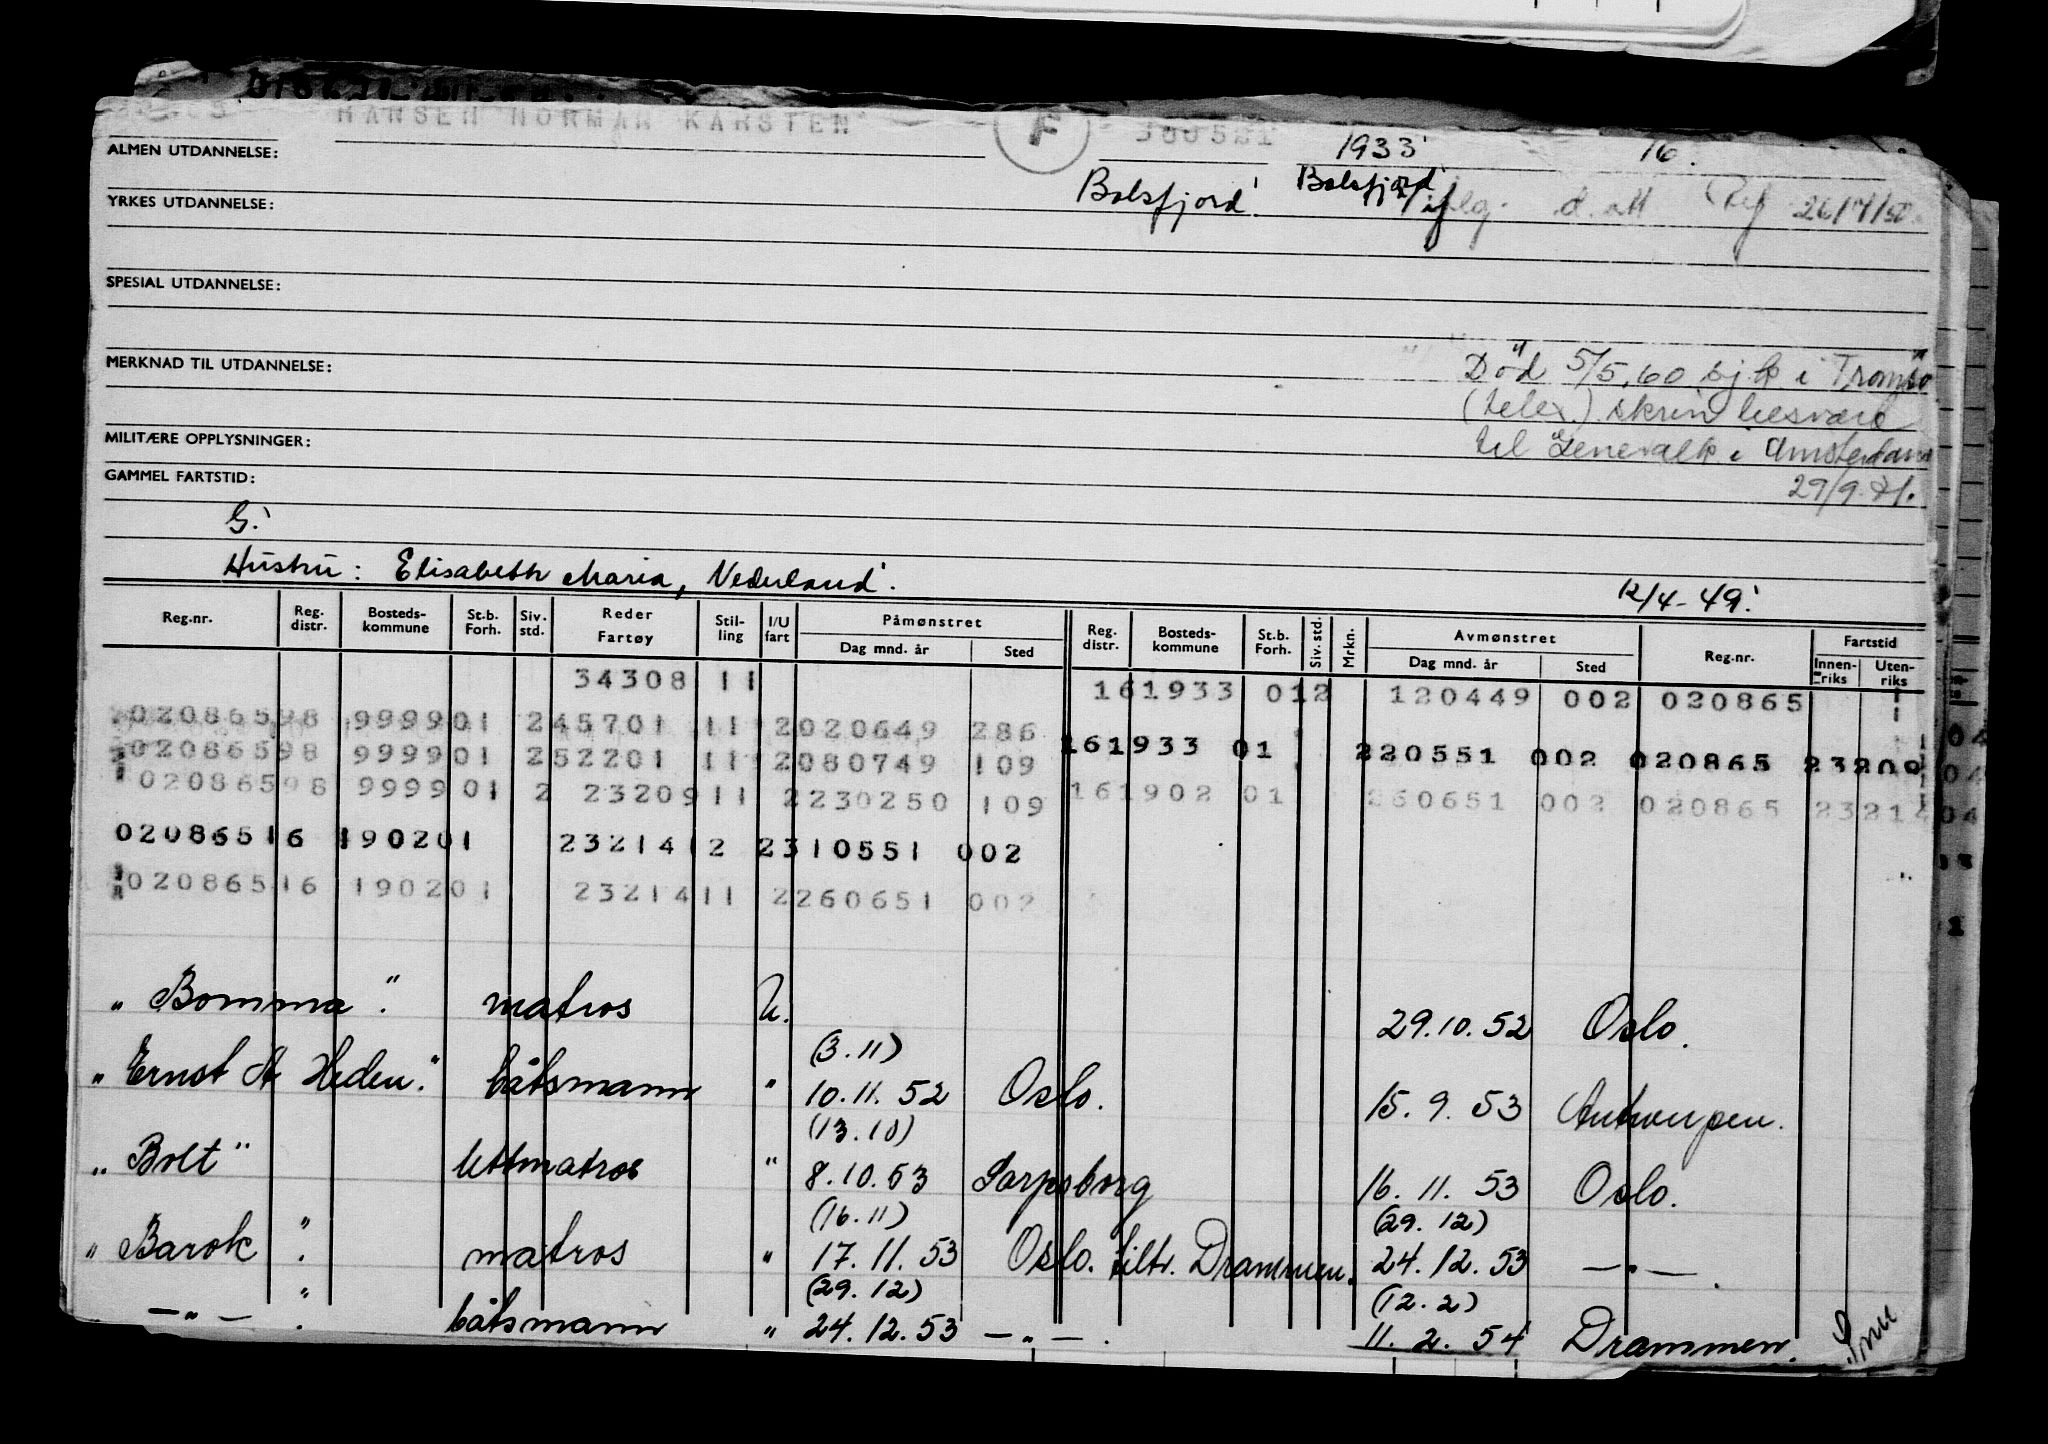 HANSEN NORMAN KARSTEN F 300521 1933 16.
ALMEN UTDANNELSE:
Balsfjord Balsfjord
YRKES UTDANNELSE: iflg. d. att Ref
SPESIAL UTDANNELSE:
MERKNAD TIL UTDANNELSE: Død 5/5.60 sjk i Tromsø
(telex) skrin besvare
MILITÆRE OPPLYSNINGER: til Generalk i Amsterdam
GAMMEL FARTSTID: 29/9.71.
G.
Hustru: Elisabeth Maria, Nederland. 12/4-49.
Reg.nr. Reg. distr. Bosteds-kommune St.b. Forh. Siv. std. Reder Fartøy Stil-ling I/U fart Påmønstret Dag mnd. år Sted Reg. distr. Bosteds-kommune St.b. Forh. Siv. std. Mrkn. Avmønstret Dag mnd. år Sted Reg.nr. Fartstid Innen-riks Uten-riks
34308 11 161933 012 120449 002 020865
02086598 999901 245701 11 2020649 286
02086598 999901 252201 11 2080749 109 161933 01 220551 002 020865 23209
02086598 999901 2 2320911 2230250 109 161902 01 260651 002 020865 23214
02086516 190201 2321412 2310551 002
02086516 190201 2321411 2260651 002
"Bomma". matros U. 29.10.52 Oslo.
(3.11)
"Ernst A Heden". båtsmann " 10.11.52 Oslo. 15.9.53 Antwerpen.
(13.10)
"Bolt" lettmatros " 8.10.53 Sarpsborg 16.11.53 Oslo.
(16.11) (29.12)
"Barok". matros " 17.11.53 Oslo. tiltr. Drammen. 24.12.53 —"—.
(29.12) (12.2)
—"— ". båtsmann " 24.12.53 —"—. 11.2.54 Drammen. Snu